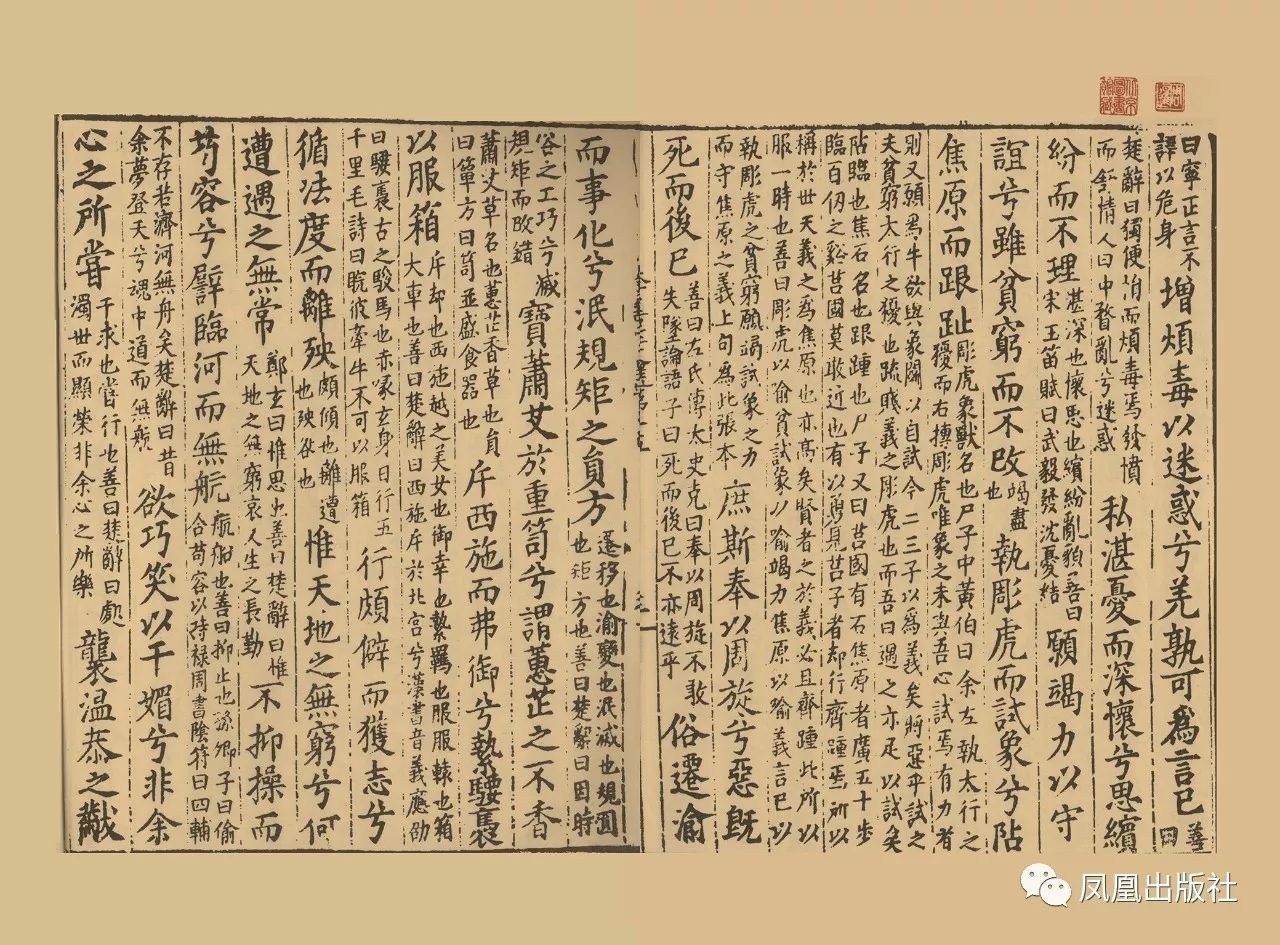 曰寧正言不
諱以危身
增煩毒以迷惑兮羌孰可爲言已
善
曰
楚辭曰獨便悁而煩毒焉發憤
而舒情人曰中瞀亂兮迷惑
私湛憂而深懷兮思繽
紛而不理
湛深也懷思也繽紛亂貌善曰
宋玉笛賦曰武毅發沈憂結
願竭力以守
誼兮雖貧窮而不改
竭盡
也
執彫虎而試象兮阽
焦原而跟趾
彫虎象獸名也尸子中黃伯曰余左執太行之
獶而右搏彫虎唯象之未與吾心試焉有力者
則又願爲牛欲與象鬭以自試今二三子以爲義矣將惡乎試之
夫貧窮太行之獶也疏賤義之彫虎也而吾曰遇之亦足以試矣
阽臨也焦石名也跟踵也尸子又曰莒國有石焦原者廣五十步
臨百仞之谿莒國莫敢近也有以勇見莒子者却行齊踵焉所以
稱於世夫義之爲焦原也亦高矣賢者之於義必且齊踵此所以
服一時也善曰彫虎以喻貧試象以喻竭力焦原以喻義言已以
執彫虎之貧窮願竭試象之力
而守焦原之義上句為此張本
庶斯奉以周旋兮惡既
死而後已
善曰左氏傳太史克曰奉以周旋不敢
失墜論語子曰死而後已不亦遠乎
俗遷渝
而事化兮泯規矩之員方
遷移也渝變也泯滅也規圓
也矩方也善曰楚辭曰固時
俗之工巧兮滅
規矩而改錯
寶蕭艾於重笥兮謂蕙茝之不香
蕭艾草名也蕙茝香草也員
曰簞方曰笥並盛食器也
斥西施而弗御兮縶騕褭
以服箱
斥却也西施越之美女也御幸也縶羈也服服轅也箱
大車也善曰楚辭曰西施斥於北宮兮漢書音義應劭
曰騕褭古之駿馬也赤喙玄身日行五
千里毛詩曰睆彼牽牛不可以服箱
行頗僻而獲志兮
循法度而離殃
頗傾也離遭
也殃咎也
惟天地之無窮兮何
遭遇之無常
鄭玄曰惟思也善曰楚辭曰惟
天地之無窮哀人生之長勤
不抑操而
苟容兮譬臨河而無航
航船也善曰抑止也孫卿子曰偷
合苟容以持祿周書陰符曰四輔
不存若濟河無舟矣楚辭曰昔
余夢登天兮魂中道而無航
欲巧笑以干媚兮非余
心之所嘗
干求也嘗行也善曰楚辭曰處
濁世而顯榮非余心之所樂
襲溫恭之黻
凤凰出版社